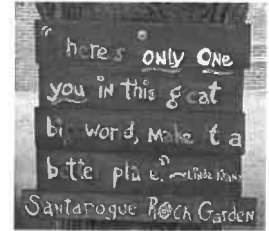 "here's only One
you in this g eat
big wor d, Make it a
better place."
Santarogue Rock Garden